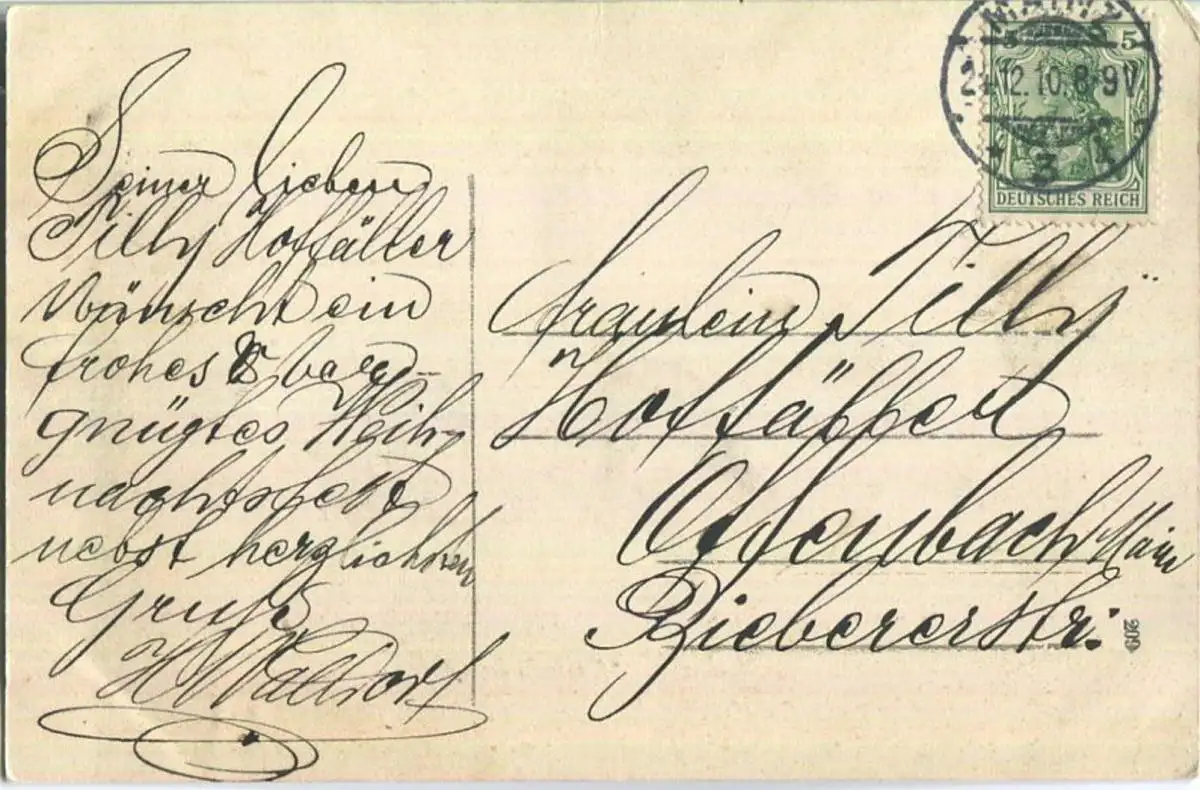 Seiner lieben
Tilly Hoffälter
wünscht ein
frohes & ver-
gnügtes Weih-
nachtsfest
nebst herzlichsten
Gruß
H Walldorf
MAINZ
12.10.8-9V
* 3 1
5
DEUTSCHES REICH
Fräulein Tilly
Offenbach Main
Biebererstr:
209